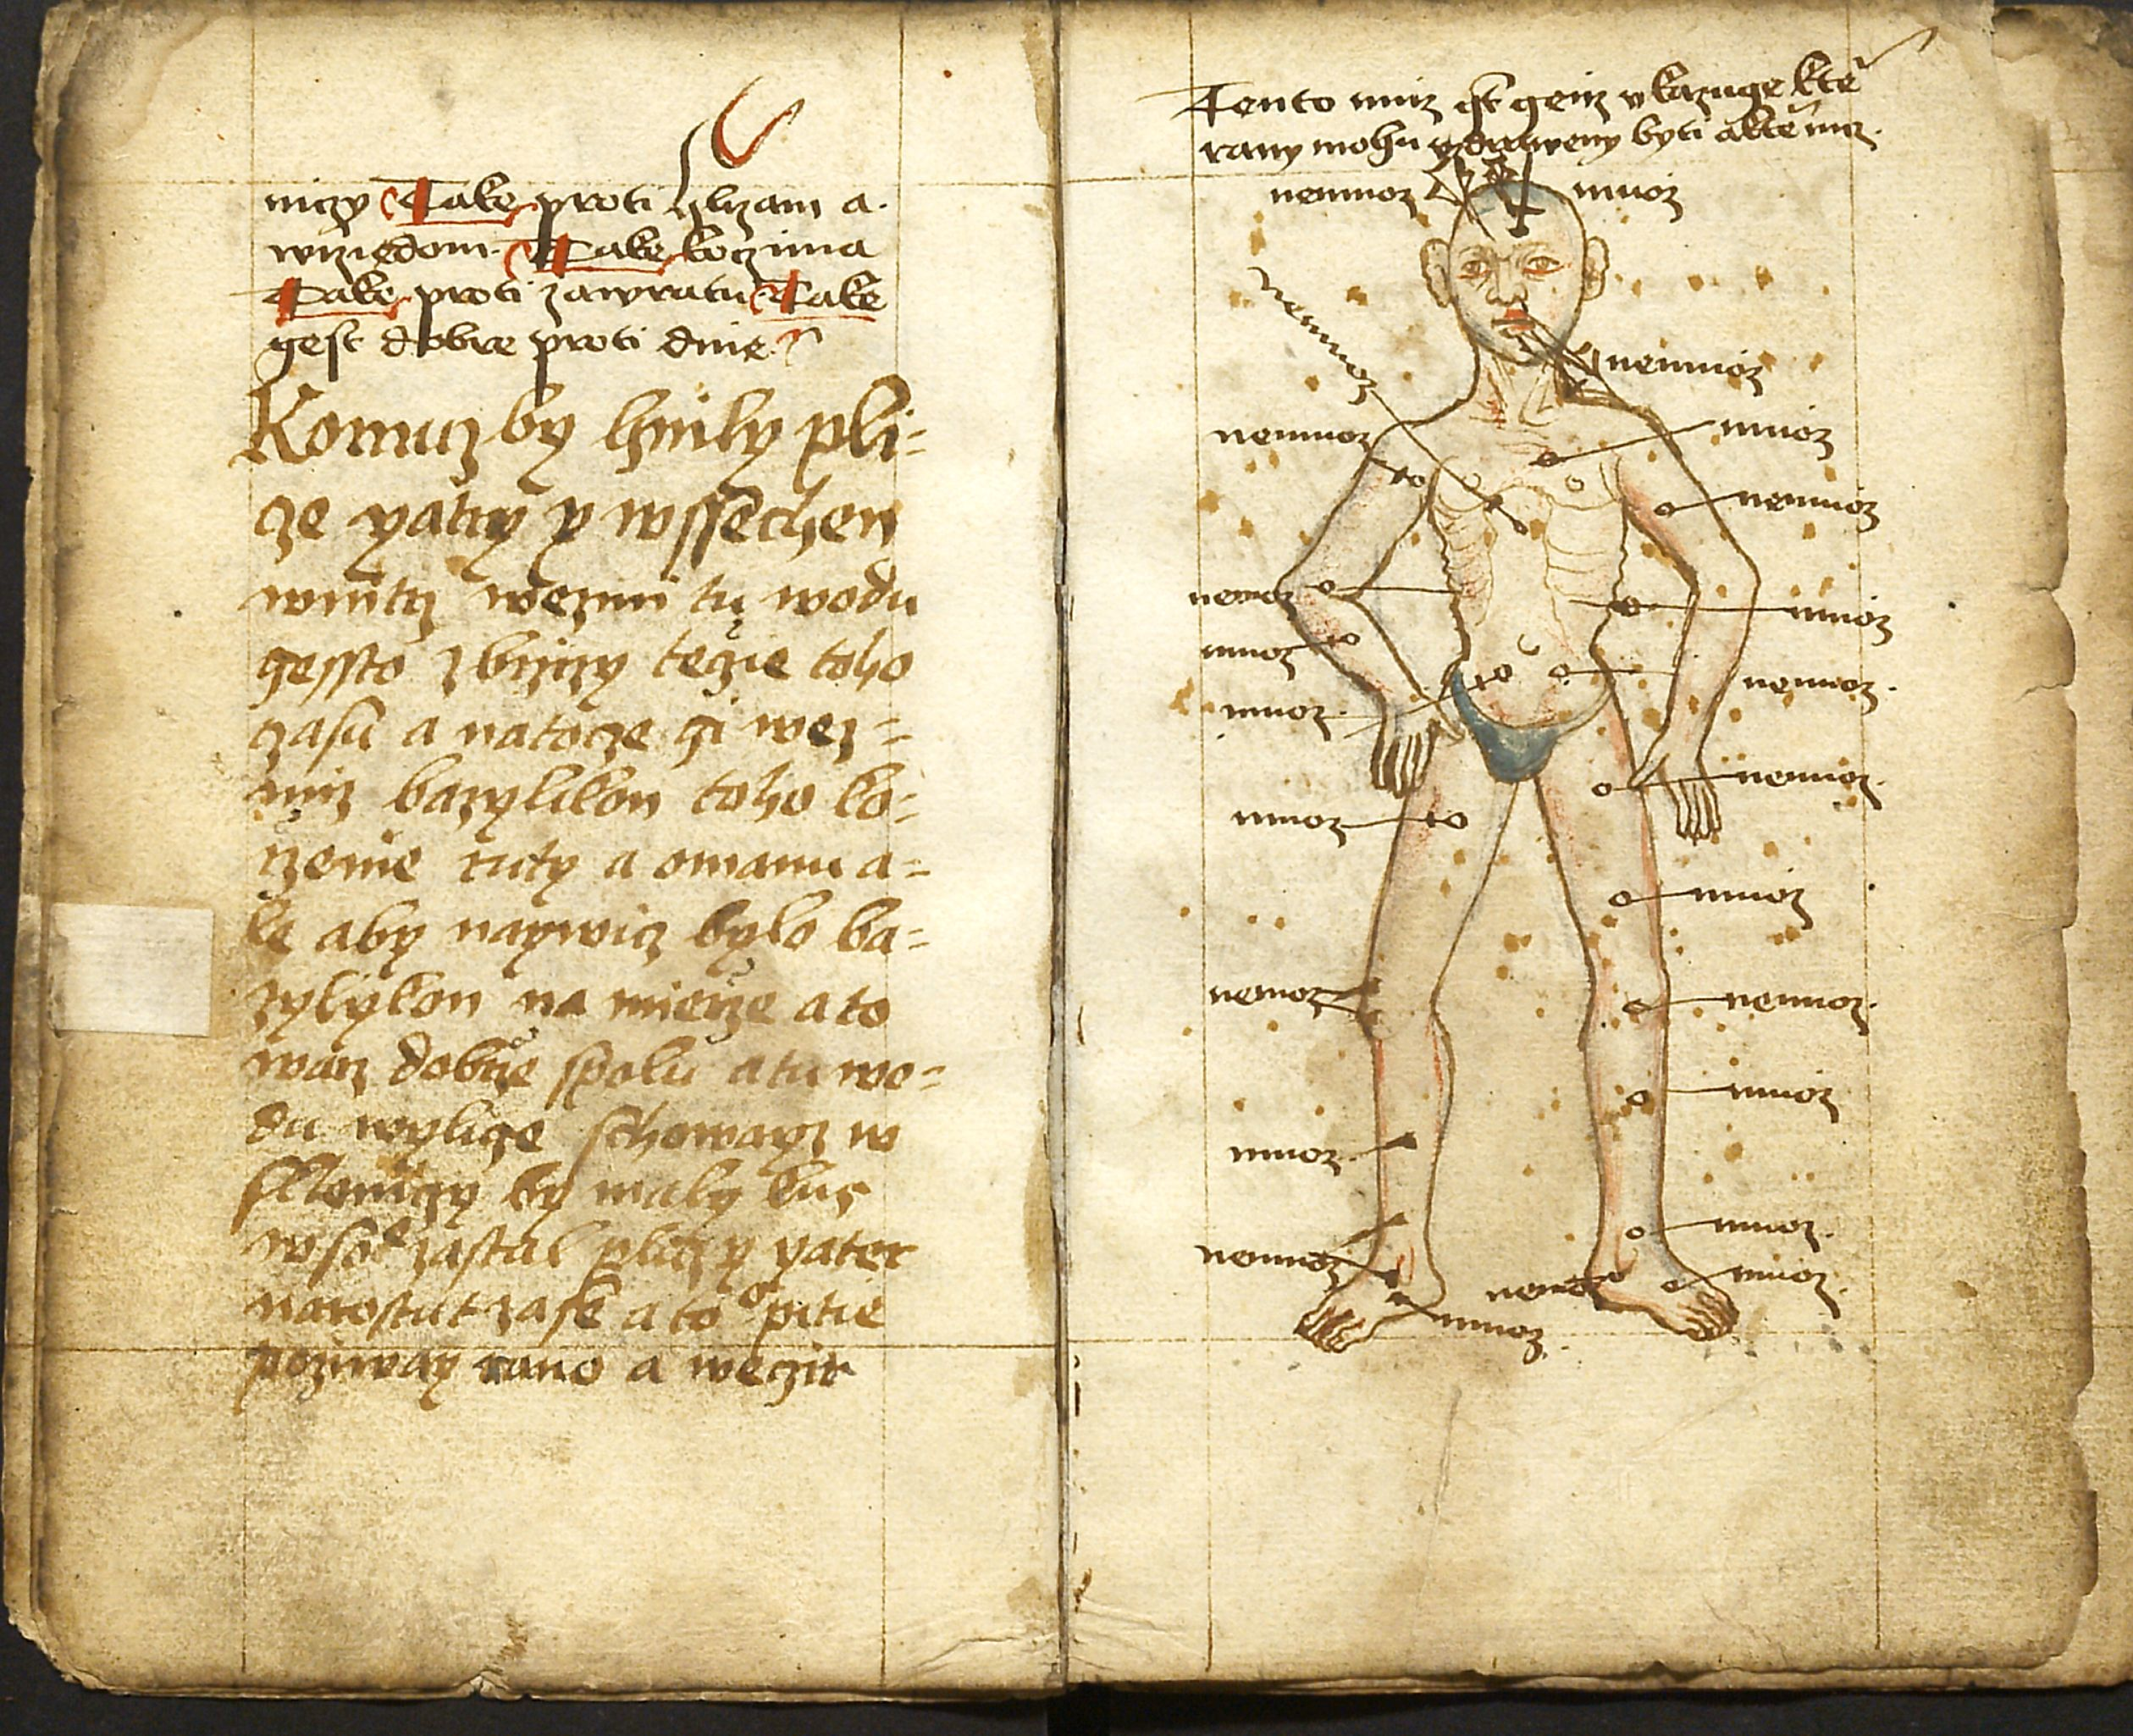 niczy Take proti hlizam a
wrziedom. Take koczima
Take proti zawratu Take
gest dobre proti dnie
Komuz by hnily pli-
cze yatry y wssechen
wnitrz wezmi tu wodu
gessto zbrzizy tezie toho
czasu a natocze gi wez-
miz bazylikon toho ko-
rzenie ruty a omanu a-
le aby naywicz bylo ba-
zylykon na mierze a to
warz dobrze spolu a tu wo-
du wyligę schowayz w
skleniczy by maly kus
w sobie zastal pliczy yater
narostut zase a to pitie
poziway rano a weczir
Tento muz gest genz vkazuge kte
rany mohu vzdraweny byti a kte nicz.
nemuoz
muoz
nemuoz
nemuoz
nemuoz
muoz
nemuoz
nemoz
muoz
muoz
nemuoz
muoz
nemuoz
muoz
muoz
nemoz
nemuoz
muoz
muoz
muoz
nemuoz
nemoz
muoz
muoz